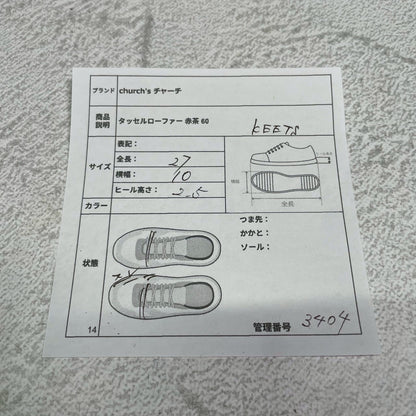 ブランド church's チャーチ
商品説明 タッセルローファー 赤茶 60
KEETS
サイズ
表記：
全長： 27
横幅： 10
ヒール高さ： 2.5
ヒール高さ
横幅
全長
カラー
状態
つま先：
かかと：
ソール：
14
管理番号 3404